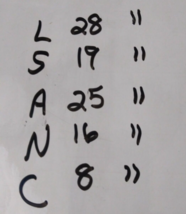 L 28 "
S 19 "
A 25 "
N 16 "
C 8 "